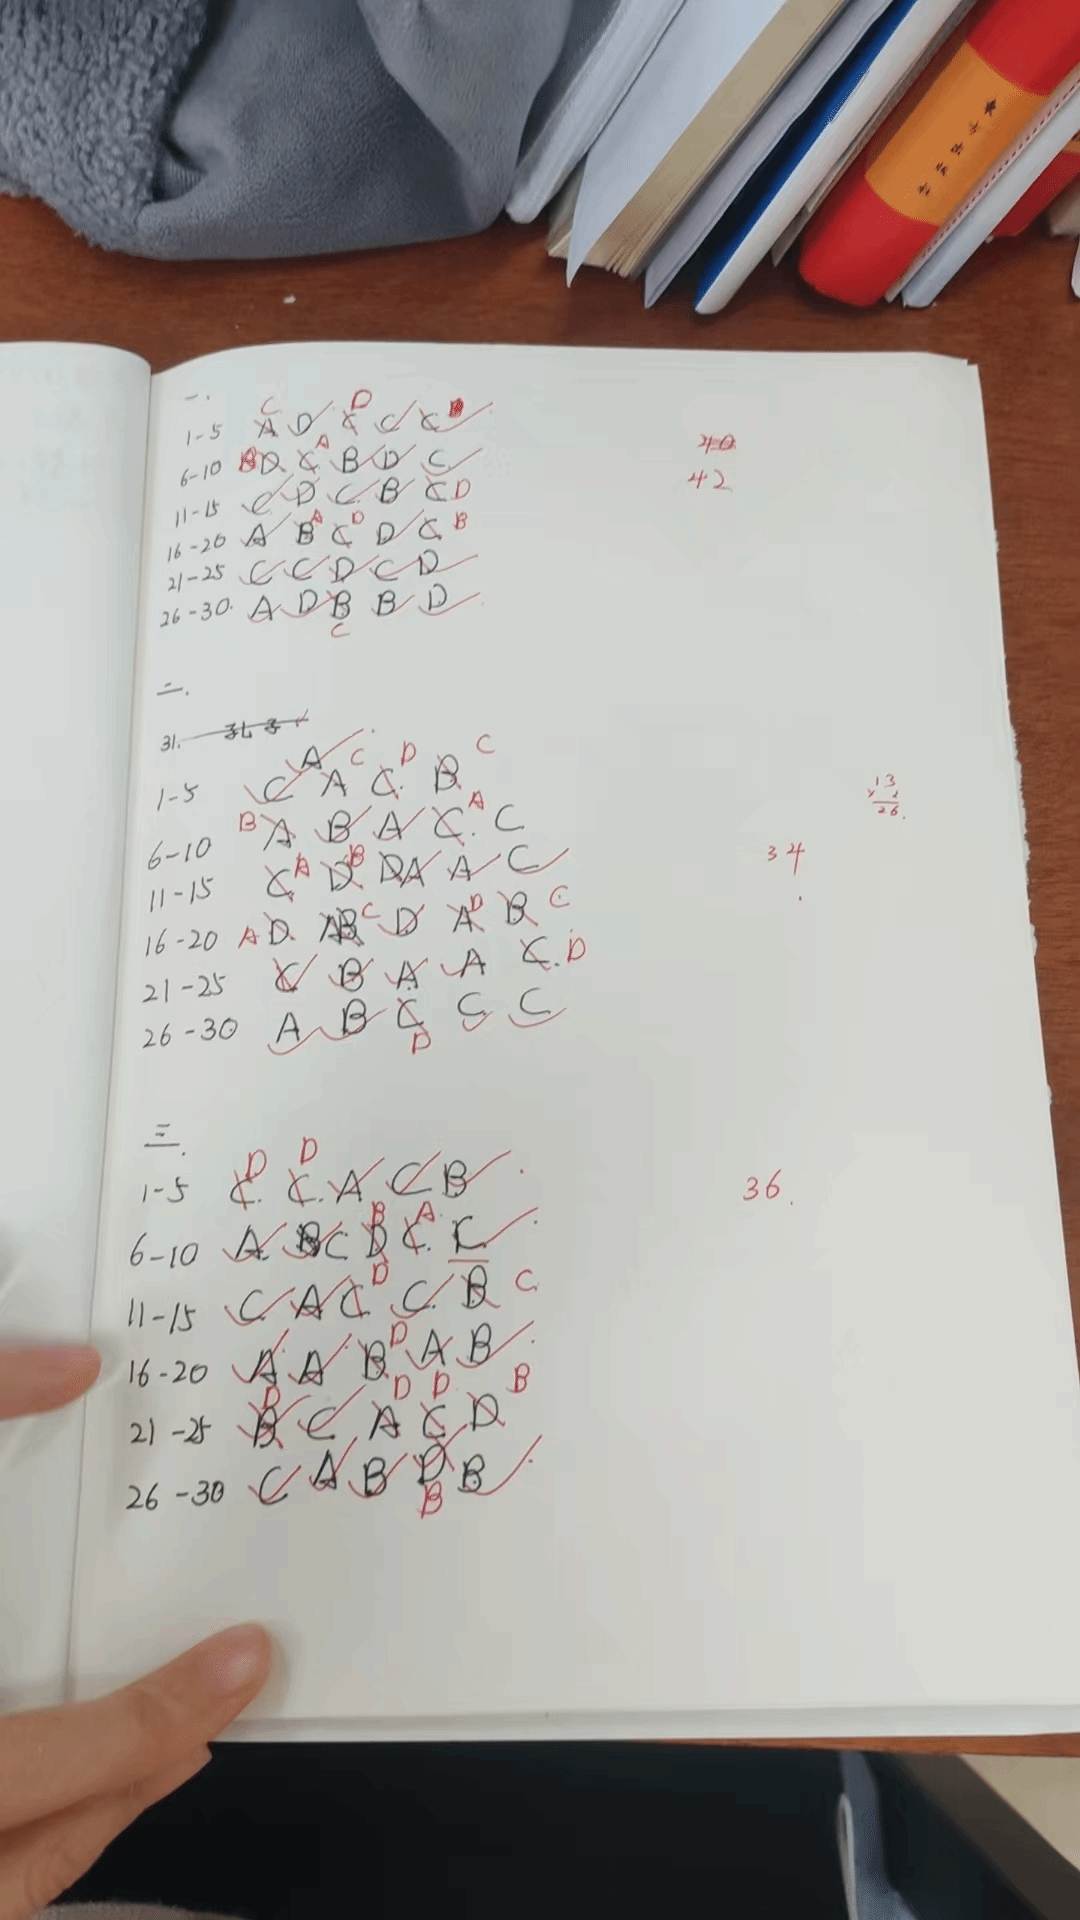 东方出版社
一.
C D B
1-5 A D C C C
B A
6-10 D C B D C
40
42
11-15 C D C B C D
A D
16-20 A B C D C B
21-25 C C D C D
26-30. A D B B D
C
二.
31. 孔子
A C D C
1-5 C A C. B
B A
6-10 A B A C. C
13
× 2
26.
A B
11-15 C D DA A C
34
16-20 A D. AB C D A D B C
21-25 C B A A C. D
26-30 A B C C C
D
三.
D D
1-5 C. C. A C B
36.
B A
6-10 A BC D C. C
D
11-15 C A C C. B C
D
16-20 A A B A B
D D D B
21-25 B C A C D
26-30 C A B D B
B